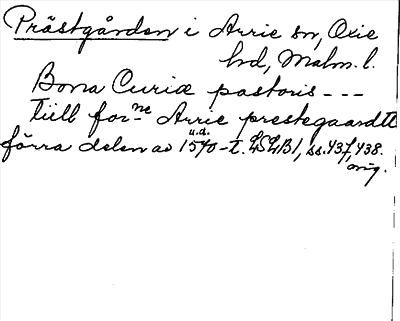 Prästgården i Arrie sn, Oxie
hd, Malm. l.
Bona Curiæ pastoris - - -
tüll for ne Arrie prestegaardtt
u.d.
förra delen av 1570-t. LSLB1, ss. 437, 438.
orig.